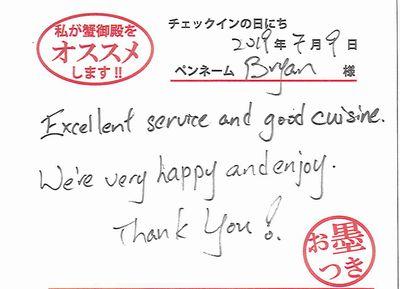 私が蟹御殿を
オススメ
します!!
チェックインの日にち
2019年7月9日
ペンネーム Bryan 様
Excellent service and good cuisine.
We're very happy and enjoy.
Thank You!
お墨
つき